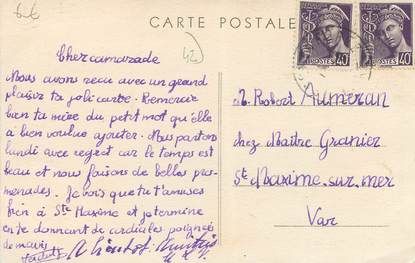 6-6
CARTE POSTALE
42
POSTES 40
POSTES 40
Cher camarade
Nous avons reçu avec un grand
plaisir ta joli carte. Remercie
bien ta mère du petit mot qu'elle
à bien voulue ajouter. Nous partons
lundi avec regret car le temps est
beau et nous faisons de belles pro-
menades. Je vois que tu t'amuses
bien à Ste Maxime et je termine
en te donnant de cordiales poignées
de mains
M. Robert Aumeran
chez Maître Granier
Ste Maxime-sur-mer
Var